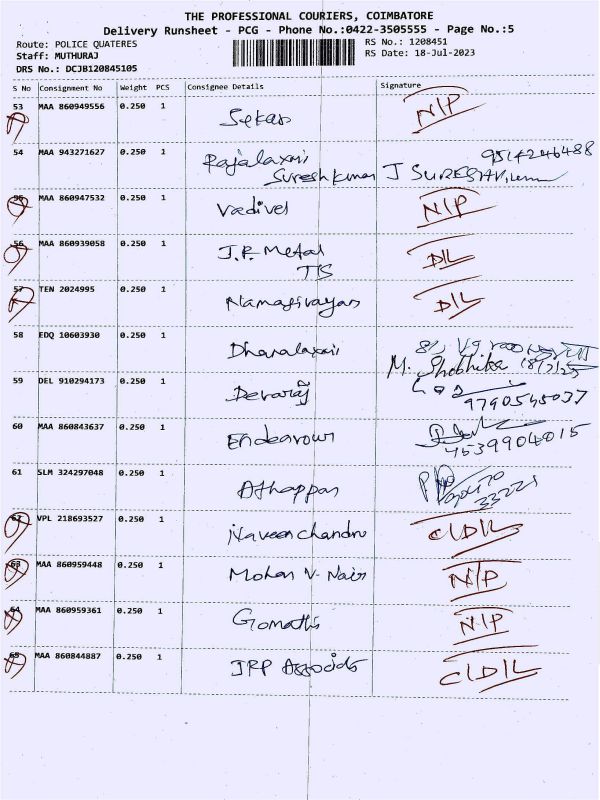 THE PROFESSIONAL COURIERS, COIMBATORE
Delivery Runsheet - PCG - Phone No.:0422-3505555 - Page No.:5
Route: POLICE QUATERES
Staff: MUTHURAJ
DRS No.: DCJB120845105
RS No.: 1208451
RS Date: 18-Jul-2023
S No Consignment No Weight PCS Consignee Details Signature
53 MAA 860949556 0.250 1 Sekar N|P
54 MAA 943271627 0.250 1 Rajalaxmi
Sureshkumar J SURESH
55 MAA 860947532 0.250 1 Vadivel N|P
56 MAA 860939058 0.250 1 J.P. Metal D|L
57 TEN 2024995 0.250 1 D|L
58 EDQ 10603930 0.250 1 Dhanalaxmi
M. Shobhika 18/7/23
59 DEL 910294173 0.250 1 Devaraj
9790545037
60 MAA 860843637 0.250 1 Endeavour
61 SLM 324297048 0.250 1 Athappan
62 VPL 218693527 0.250 1 Naveenchandru C|D|L
63 MAA 860959448 0.250 1 Mohan V. Nair N|P
64 MAA 860959361 0.250 1 Gomathi N|P
65 MAA 860844887 0.250 1 JRP Associate C|D|L